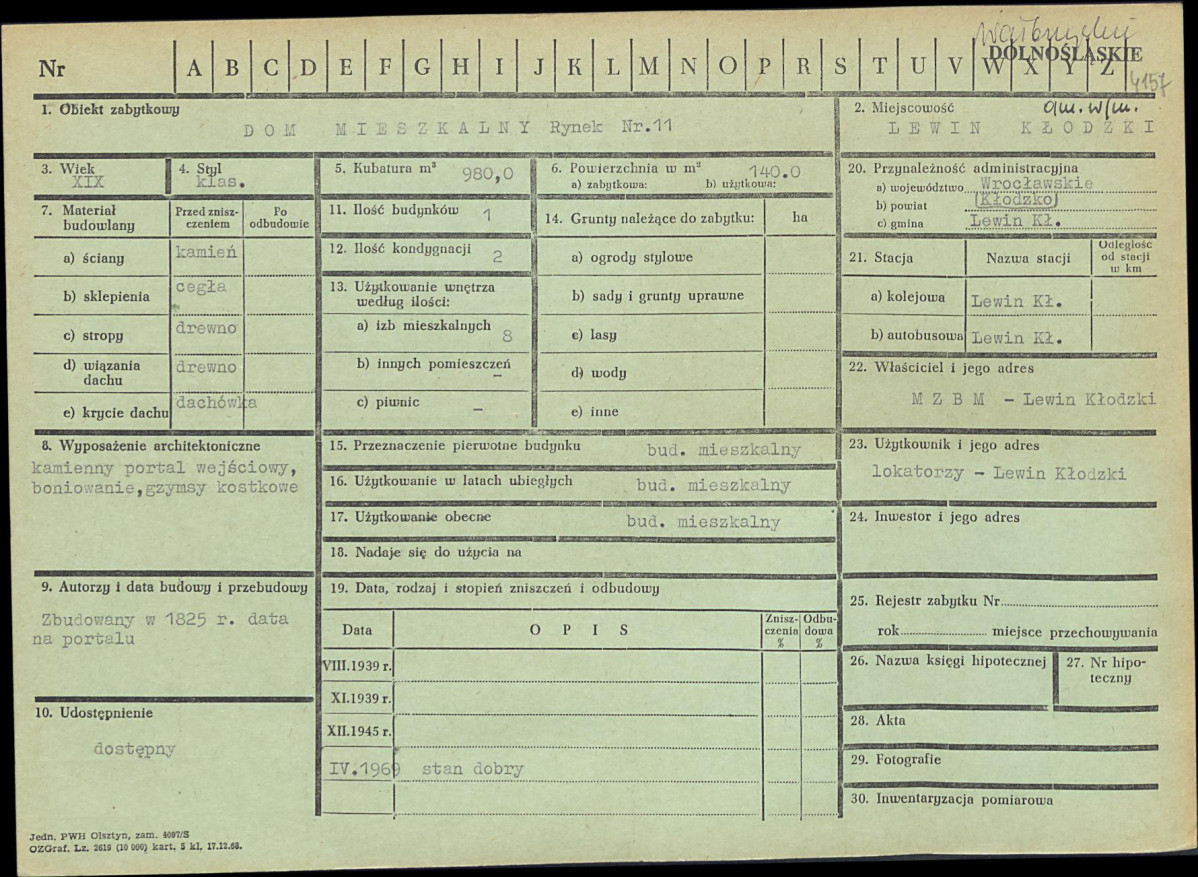 Wałbrzyskie
DOLNOŚLĄSKIE
4157
Nr A B C D E F G H I J K L M N O P R S T U V W X Y Z
1. Obiekt zabytkowy
DOM MIESZKALNY Rynek Nr.11
2. Miejscowość
gm. w/m.
LEWIN KŁODZKI
3. Wiek
XIX
4. Styl
klas.
5. Kubatura m³ 980,0
6. Powierzchnia w m² 140.0
a) zabytkowa: b) użytkowa:
20. Przynależność administracyjna
a) województwo Wrocławskie
b) powiat (Kłodzko)
c) gmina Lewin Kł.
7. Materiał budowlany
Przed zniszczeniem
Po odbudowie
a) ściany kamień
b) sklepienia cegła
c) stropy drewno
d) wiązania dachu drewno
e) krycie dachu dachówka
11. Ilość budynków 1
12. Ilość kondygnacji 2
13. Użytkowanie wnętrza
według ilości:
a) izb mieszkalnych 8
b) innych pomieszczeń –
c) piwnic –
14. Grunty należące do zabytku: ha
a) ogrody stylowe
b) sady i grunty uprawne
c) lasy
d) wody
e) inne
21. Stacja Nazwa stacji
Odległość
od stacji
w km
a) kolejowa Lewin Kł.
b) autobusowa Lewin Kł.
22. Właściciel i jego adres
M Z B M – Lewin Kłodzki
8. Wyposażenie architektoniczne
kamienny portal wejściowy,
boniowanie,gzymsy kostkowe
15. Przeznaczenie pierwotne budynku bud. mieszkalny
16. Użytkowanie w latach ubiegłych bud. mieszkalny
17. Użytkowanie obecne bud. mieszkalny
18. Nadaje się do użycia na
23. Użytkownik i jego adres
lokatorzy – Lewin Kłodzki
24. Inwestor i jego adres
9. Autorzy i data budowy i przebudowy
Zbudowany w 1825 r. data
na portalu
19. Data, rodzaj i stopień zniszczeń i odbudowy
Data OPIS
Znisz-
czenia
%
Odbu-
dowa
%
VIII.1939 r.
XI.1939 r.
XII.1945 r.
IV.1969 stan dobry
25. Rejestr zabytku Nr
rok miejsce przechowywania
26. Nazwa księgi hipotecznej
27. Nr hipo-
teczny
10. Udostępnienie
dostępny
28. Akta
29. Fotografie
30. Inwentaryzacja pomiarowa
Jedn. PWH Olsztyn, zam. 4097/S
OZGraf. Lz. 2619 (10 000) kart. 5 kl. 17.12.68.